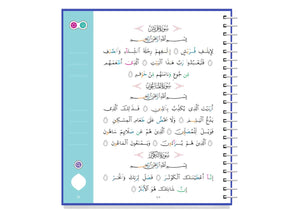 سورة قريش
بسم الله الرحمن الرحيم
لإيلاف قريش ۝ إيلافهم رحلة الشتاء والصيف
۝ فليعبدوا رب هذا البيت ۝ الذي أطعمهم
من جوع وءامنهم من خوف ۝
سورة الماعون
بسم الله الرحمن الرحيم
أرءيت الذي يكذب بالدين ۝ فذلك الذي
يدع اليتيم ۝ ولا يحض على طعام المسكين ۝
فويل للمصلين ۝ الذين هم عن صلاتهم ساهون
۝ الذين هم يراءون ۝ ويمنعون الماعون ۝
سورة الكوثر
بسم الله الرحمن الرحيم
إنا أعطيناك الكوثر ۝ فصل لربك وانحر ۝
إن شانئك هو الأبتر ۝